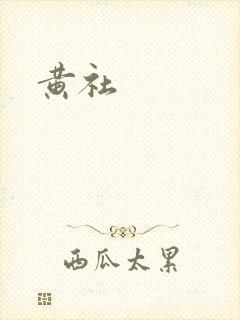 黄社
西瓜太累